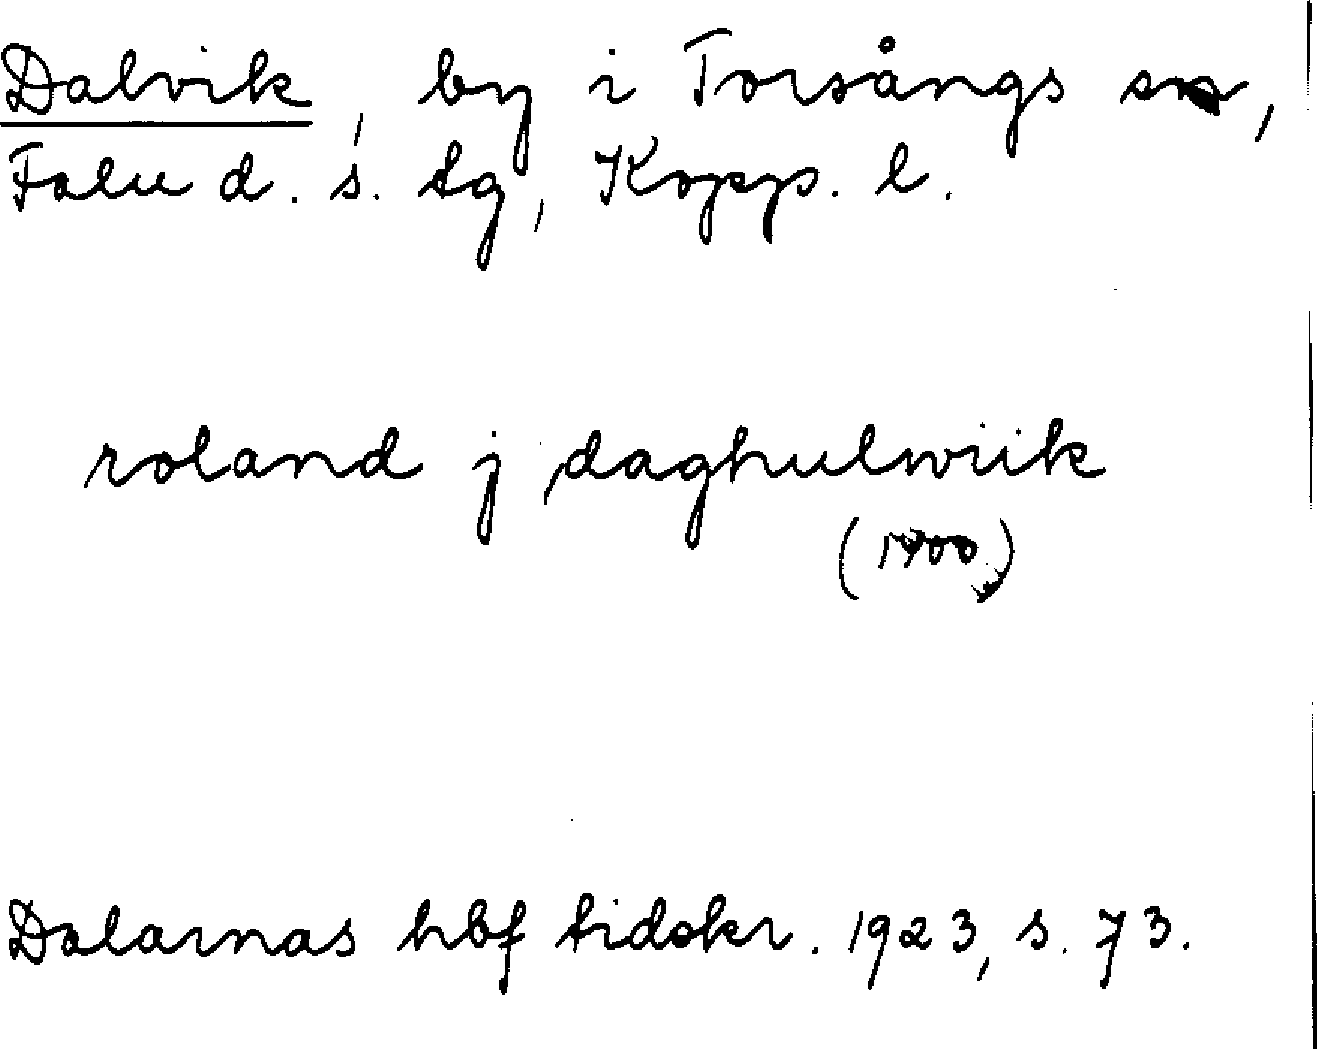 Dalvik, by i Torsångs sn,
Falu d. s. tg, Kopp. l.
roland j daghulwiik
(1400)
Dalarnas hbf tidskr. 1923, s. 73.